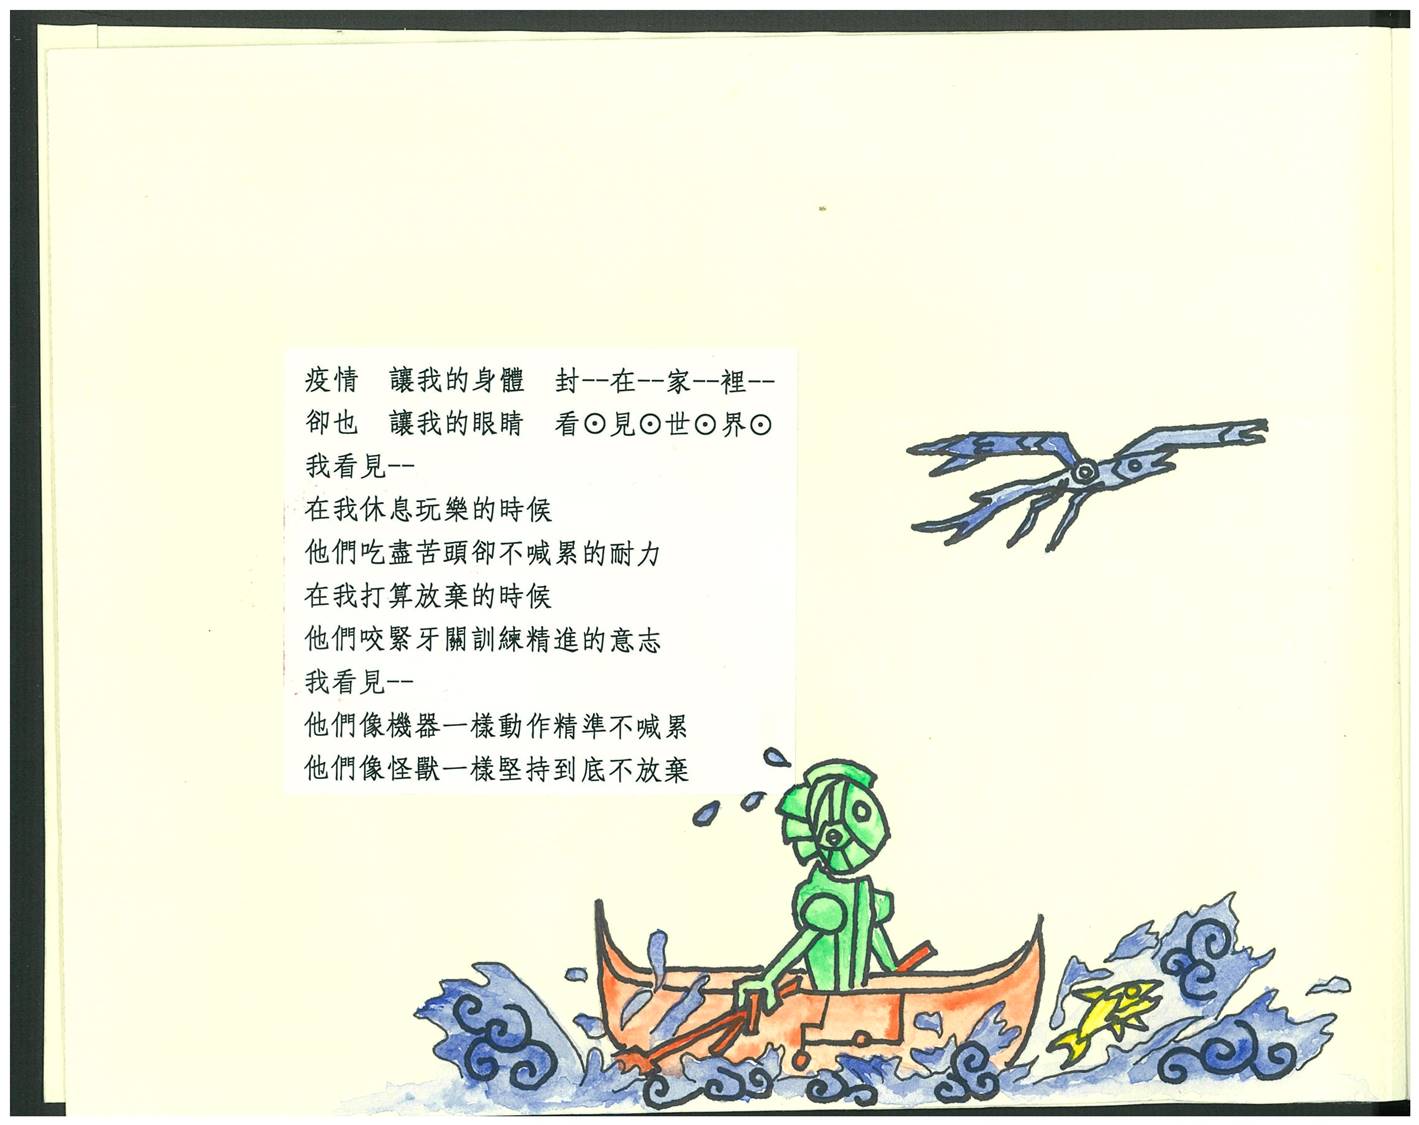 疫情　讓我的身體　封--在--家--裡--
卻也　讓我的眼睛　看⊙見⊙世⊙界⊙
我看見--
在我休息玩樂的時候
他們吃盡苦頭卻不喊累的耐力
在我打算放棄的時候
他們咬緊牙關訓練精進的意志
我看見--
他們像機器一樣動作精準不喊累
他們像怪獸一樣堅持到底不放棄